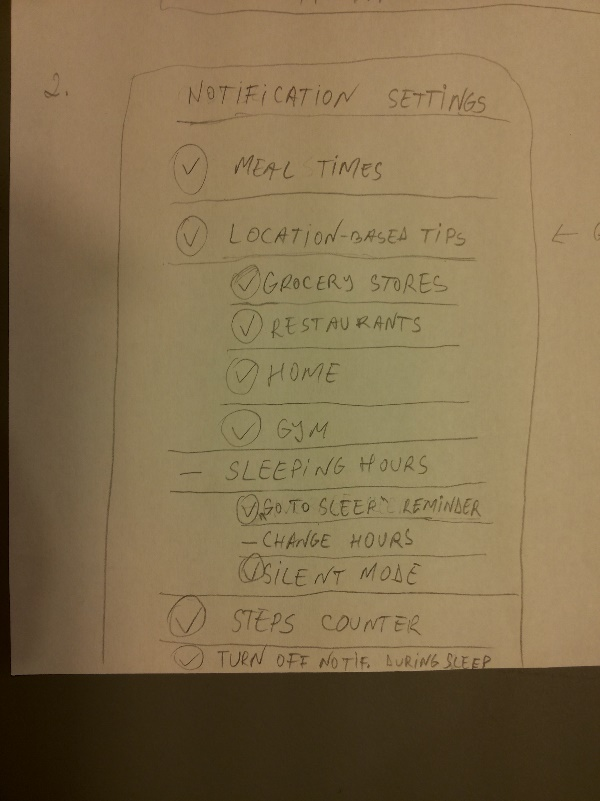 2.
NOTIFICATION SETTINGS
MEAL TIMES
LOCATION-BASED TIPS
GROCERY STORES
RESTAURANTS
HOME
GYM
— SLEEPING HOURS
GO TO SLEEP REMINDER
— CHANGE HOURS
SILENT MODE
STEPS COUNTER
TURN OFF NOTIF. DURING SLEEP